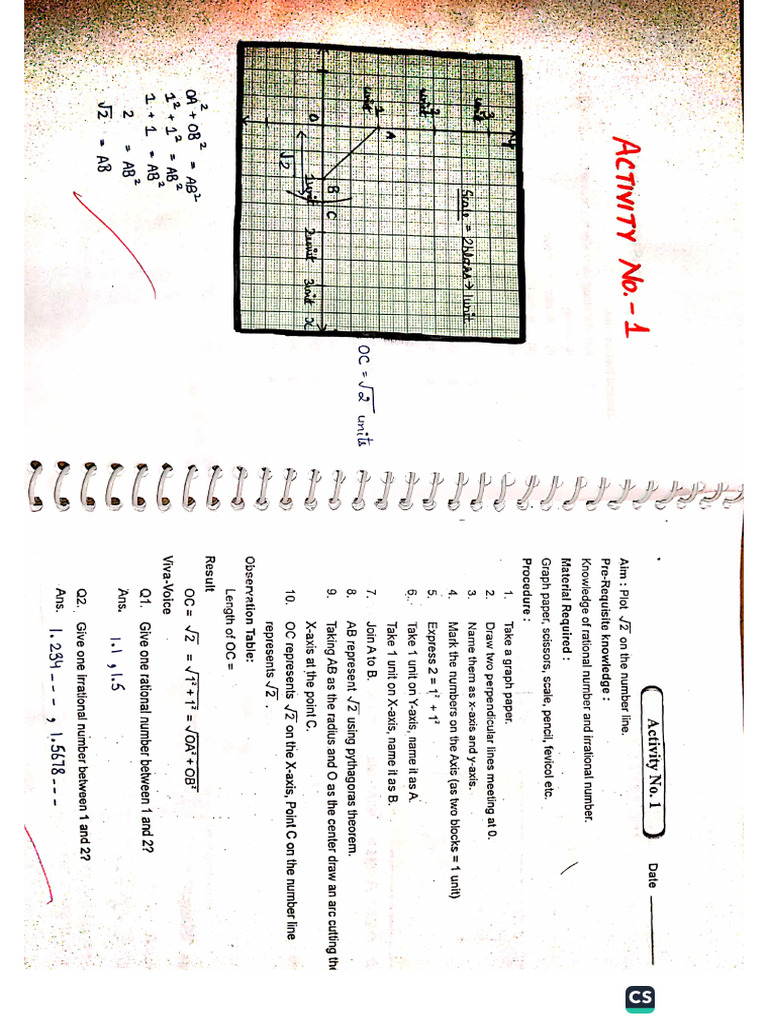 ACTIVITY No.-1
3 unit
2 unit
1 unit
Scale = 2blocks → 1unit.
A
B
C
O
1unit
2unit
3unit
x
√2
OC = √2 units
OA² + OB² = AB²
1² + 1² = AB²
1 + 1 = AB²
2 = AB²
√2 = AB
Activity No. 1
Date
Aim : Plot √2 on the number line.
Pre-Requisite knowledge :
Knowledge of rational number and irrational number.
Material Required :
Graph paper, scissors, scale, pencil, fevicol etc.
Procedure :
1. Take a graph paper.
2. Draw two perpendicular lines meeting at 0.
3. Name them as x-axis and y-axis.
4. Mark the numbers on the Axis (as two blocks = 1 unit)
5. Express 2 = 1² + 1²
6. Take 1 unit on Y-axis, name it as A.
Take 1 unit on X-axis, name it as B.
7. Join A to B.
8. AB represent √2 using pythagoras theorem.
9. Taking AB as the radius and O as the center draw an arc cutting the
X-axis at the point C.
10. OC represents √2 on the X-axis, Point C on the number line
represents √2 .
Observation Table:
Length of OC =
Result
OC = √2 = √1² + 1² = √OA² + OB²
Viva-Voice
Q1. Give one rational number between 1 and 2?
Ans. 1.1 , 1.5
Q2. Give one irrational number between 1 and 2?
Ans. 1.234--- , 1.5678---
CS